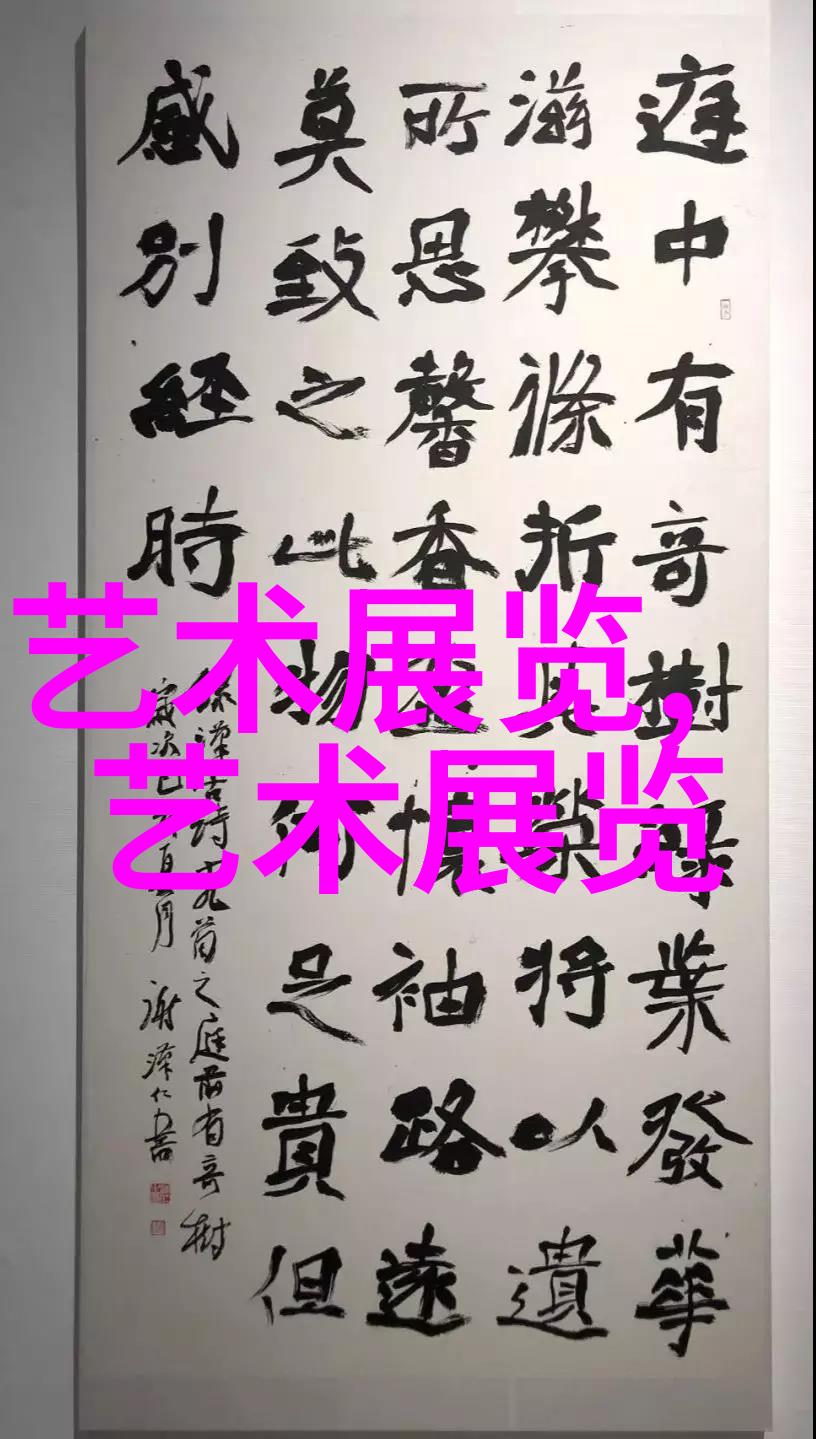 庭中有奇樹綠葉發華
滋攀條折其榮將以遺
所思馨香盈懷袖路遠
莫致之此物何足貴但
感別經時
錄漢古詩十九首之庭前有奇樹
歲次己月 謝澤仁書
艺术展览,
艺术展览